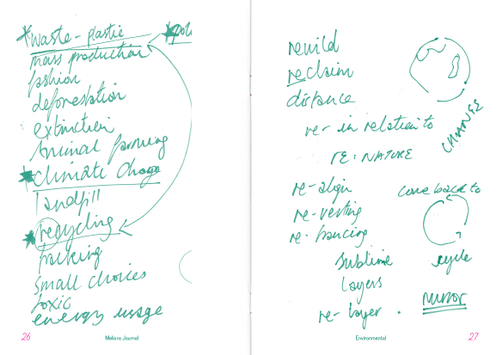 waste-plastic
mass production
fashion
deforestation
extinction
Animal farming
climate change
landfill
recycling
small choices
toxic
energy usage
26
rewild
reclaim
distance
re- in relation to
CHANGE
RE: NATURE
re-align
come back to
re-
re-
sublime
cycle
layers
re-layer
mirror
Environmental
27